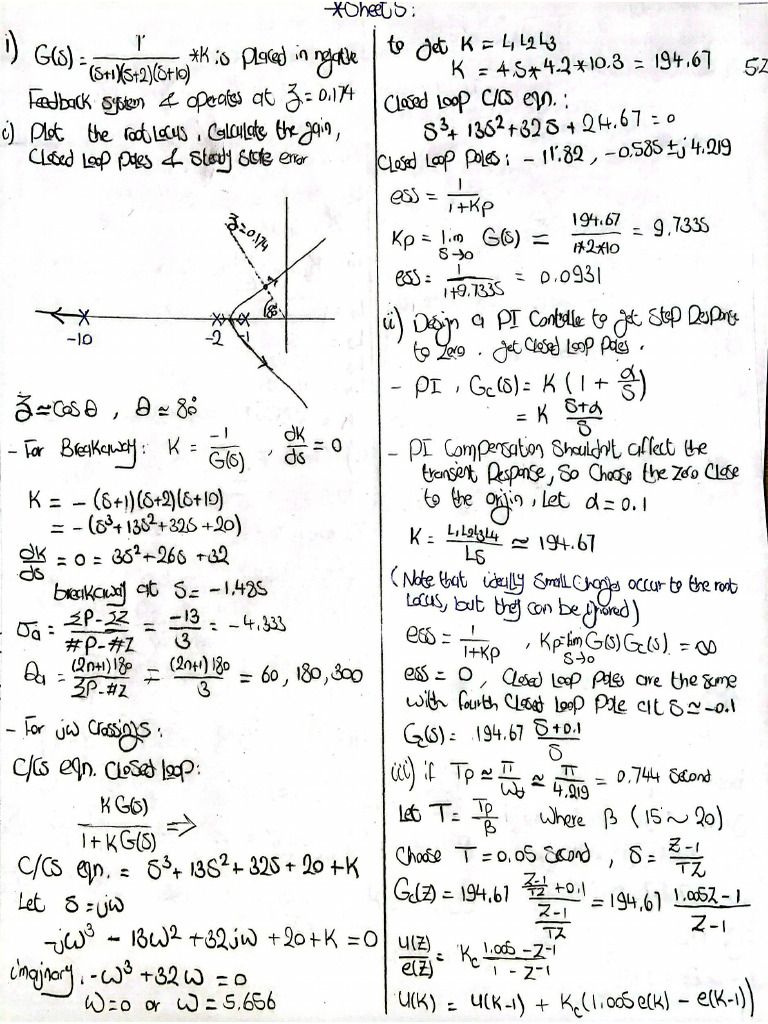 *Sheet 5:
1) G(s) = 1 / (s+1)(s+2)(s+10) *K is placed in negative
Feedback system & operates at ζ = 0.174
i) Plot the root Locus, Calculate the gain,
Closed Loop Poles & Steady State error
ζ=0.174
80°
-10 -2 -1
ζ = cos θ , θ ≃ 80°
- For Breakaway: K = -1 / G(s) , dK/ds = 0
K = -(s+1)(s+2)(s+10)
= -(s³+13s²+32s+20)
dK/ds = 0 = 3s²+26s+32
breakaway at s = -1.485
σa = ΣP-ΣZ / #P-#Z = -13/3 = -4.333
θa = (2n+1)180 / ΣP-#Z = (2n+1)180 / 3 = 60, 180, 300
- For jw Crossings:
C/Cs eqn. Closed Loop:
KG(s) / 1+KG(s) ⇒
C/Cs eqn. = s³+13s²+32s+20+K
Let s=jw
-jw³ - 13w² +32jw +20+K = 0
imajnary: -w³ +32w = 0
w=0 or w = 5.656
to get K = L1L2L3
K = 4.5*4.2*10.3 = 194.67
52
Closed Loop C/Cs eqn.:
s³+13s²+32s+214.67=0
Closed Loop Poles: -11.82, -0.585±j4.219
ess = 1 / 1+Kp
Kp = lim s→0 G(s) = 194.67 / 1*2*10 = 9.7335
ess = 1 / 1+9.7335 = 0.0931
ii) Design a PI Controlle to get Step Response
to Zero. get Closed Loop Poles.
- PI, Gc(s) = K (1 + α/s)
= K s+α / s
- PI Compensation Shouldn't affect the
transent Response, So Choose the Zero Close
to the origin, Let α = 0.1
K = L1L2L3L4 / L5 ≃ 194.67
(Note that ideally Small Changes occur to the root
Locus, but they can be ignored)
ess = 1 / 1+Kp , Kp = lim s→0 G(s)Gc(s) = ∞
ess = 0, Closed Loop Poles are the same
with fourth Closed Loop Pole at s ≃ -0.1
Gc(s) = 194.67 s+0.1 / s
iii) if Tp ≃ π/wd ≃ π/4.219 = 0.744 second
Let T = Tp/β where β (15~20)
Choose T = 0.05 Second, s = Z-1 / TZ
Gc(Z) = 194.67 (Z-1/TZ + 0.1) / (Z-1/TZ) = 194.67 1.005Z-1 / Z-1
u(Z)/e(Z) = Kc 1.005 - Z⁻¹ / 1 - Z⁻¹
u(K) = u(K-1) + Kc(1.005e(K) - e(K-1))